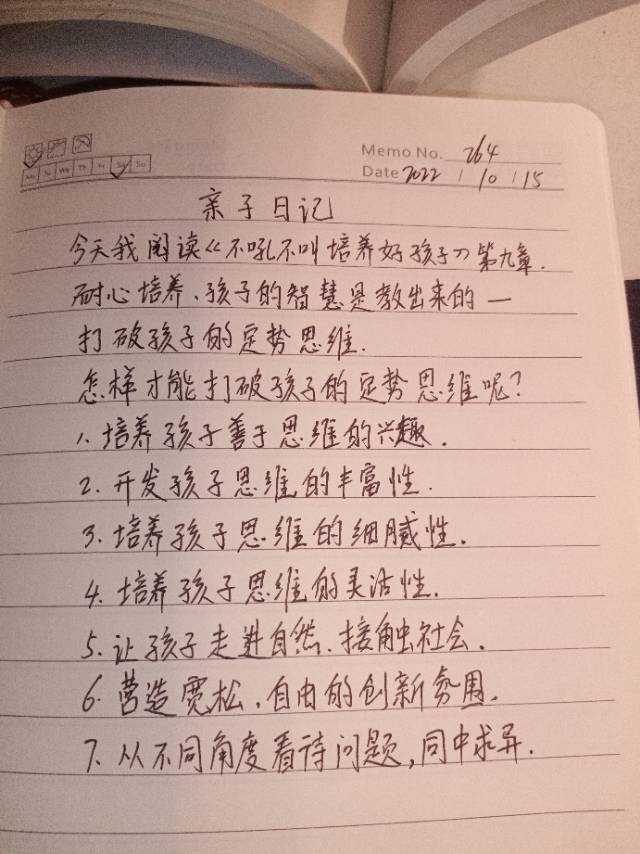 Memo No. 264
Mo Tu We Th Fr Sa Su
Date 2022 / 10 / 15
亲子日记
今天我阅读《不吼不叫培养好孩子》第九章.
耐心培养、孩子的智慧是教出来的一
打破孩子的定势思维.
怎样才能打破孩子的定势思维呢?
1. 培养孩子善于思维的兴趣.
2. 开发孩子思维的丰富性.
3. 培养孩子思维的细腻性.
4. 培养孩子思维的灵活性.
5. 让孩子走进自然、接触社会.
6. 营造宽松、自由的创新氛围.
7. 从不同角度看待问题,同中求异.